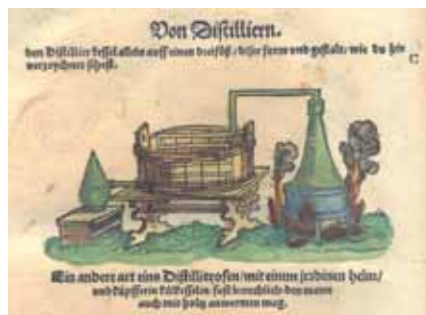 Von Distillieren.
den Distillier kessel allein auff einen dreifůß / diser form und gestalt / wie du hie
verzeychnet sihest.
C
Ein andere art eins Distillierofen / mit einem irdinen helm /
und küpfferin külkesselen fast breuchlich / den mann
auch mit holtz anwermen mag.